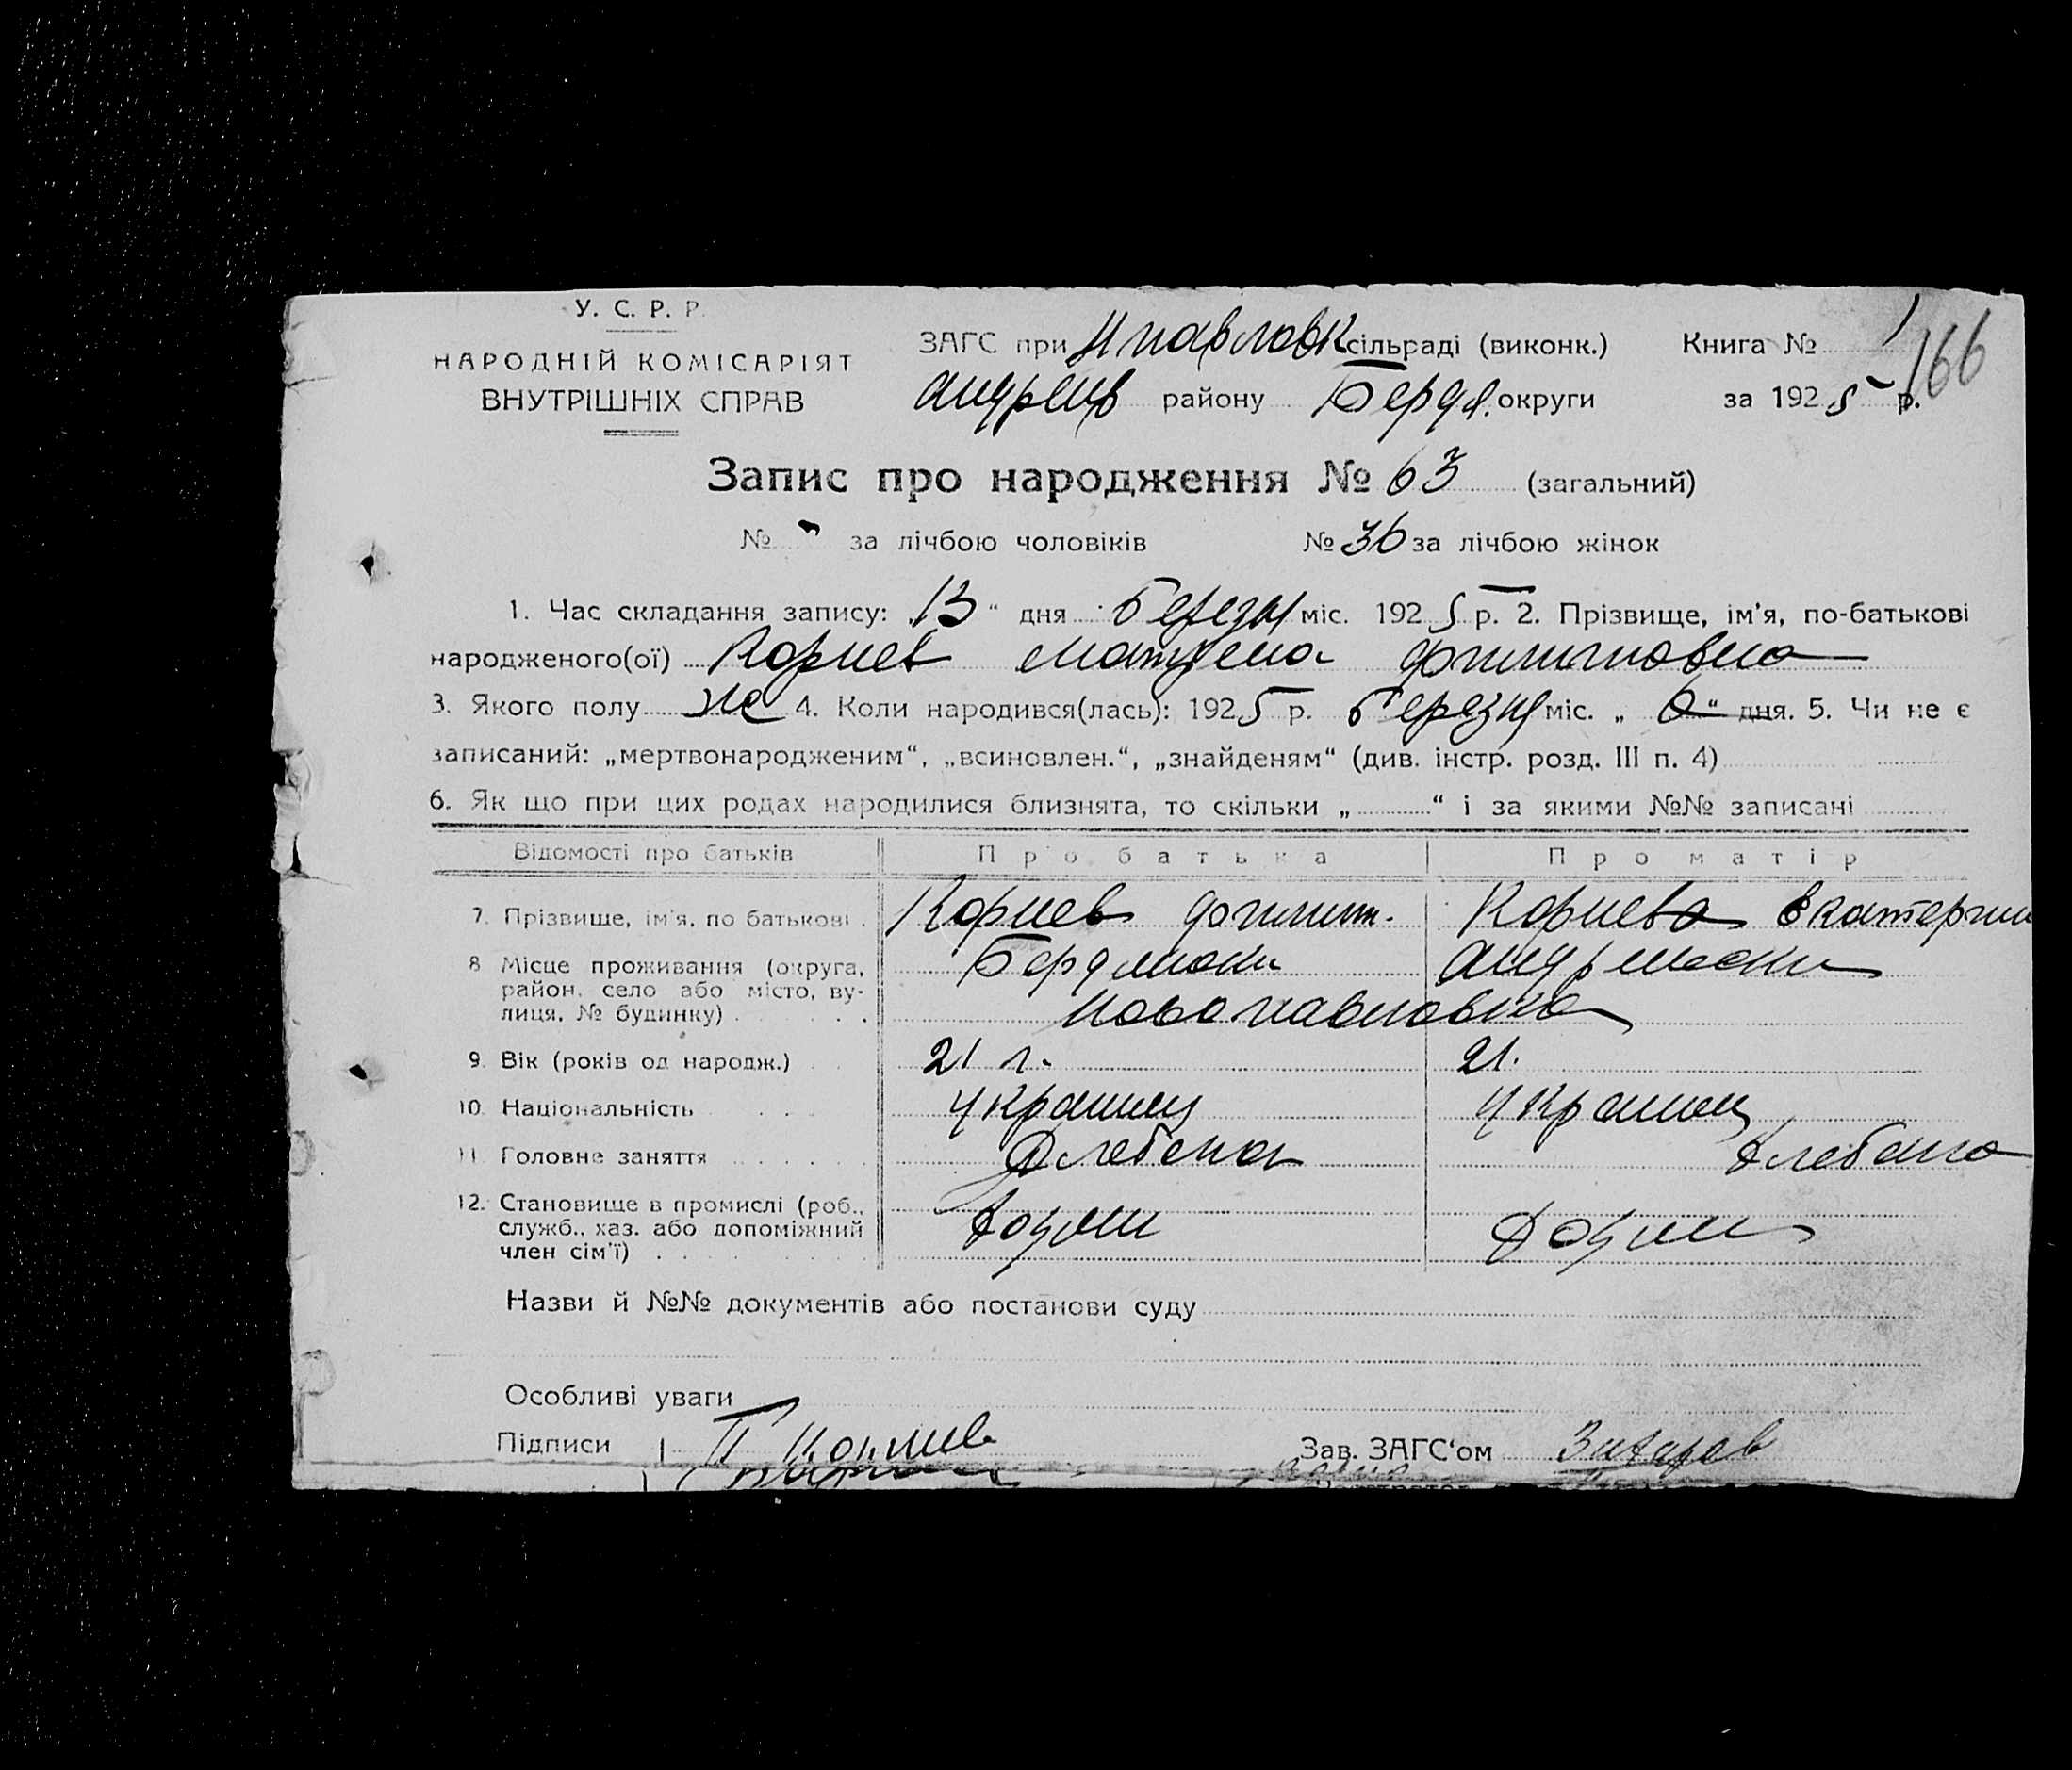 У. С. Р. Р.
НАРОДНІЙ КОМІСАРІЯТ
ВНУТРІШНІХ СПРАВ
ЗАГС при Н павловк сільраді (виконк.) Книга № 1
166
Андреив району Бердя. округи за 1925 р.
Запис про народження № 63 (загальний)
№ " за лічбою чоловіків № 36 за лічбою жінок
1. Час складання запису: 13 " дня Березня міс. 1925 р. 2. Прізвище, ім'я, по-батькові
народженого(ої) Корнев Матрена Филипповна
3. Якого полу же 4. Коли народився(лась): 1925 р. Березня міс. „ 6 “ дня. 5. Чи не є
записаний: „мертвонародженим“, „всиновлен.“, „знайденям“ (див. інстр. розд. III п. 4)
6. Як що при цих родах народилися близнята, то скільки „ “ і за якими №№ записані
Відомості про батьків Про батька Про матір
7. Прізвище, ім'я, по батькові Корнев Филипп. Корнева Екатерин
8 Місце проживання (округа, Бердянски
район, село або місто, ву-
лиця, № будинку) Новопавловка
9. Вік (років од народж.) 21 г. 21.
10. Національність Украинц Украинц
11 Головне заняття Хлебопа
12. Становище в промислі (роб.,
служб., хаз. або допоміжний
член сім'ї)
Назви й №№ документів або постанови суду
Особливі уваги
Підписи Зав. ЗАГС'ом